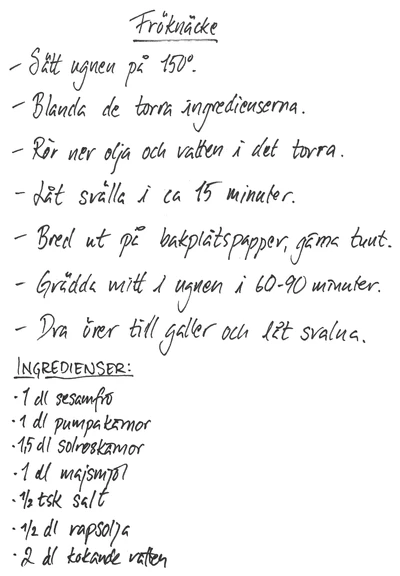 Fröknäcke
- Sätt ugnen på 150°.
- Blanda de torra ingredienserna.
- Rör ner olja och vatten i det torra.
- Låt svälla i ca 15 minuter.
- Bred ut på bakplåtspapper, gärna tunt.
- Grädda mitt i ugnen i 60-90 minuter.
- Dra över till galler och låt svalna.
INGREDIENSER:
· 1 dl sesamfrö
· 1 dl pumpakärnor
· 1,5 dl solroskärnor
· 1 dl majsmjöl
· 1/2 tsk salt
· 1/2 dl rapsolja
· 2 dl kokande vatten